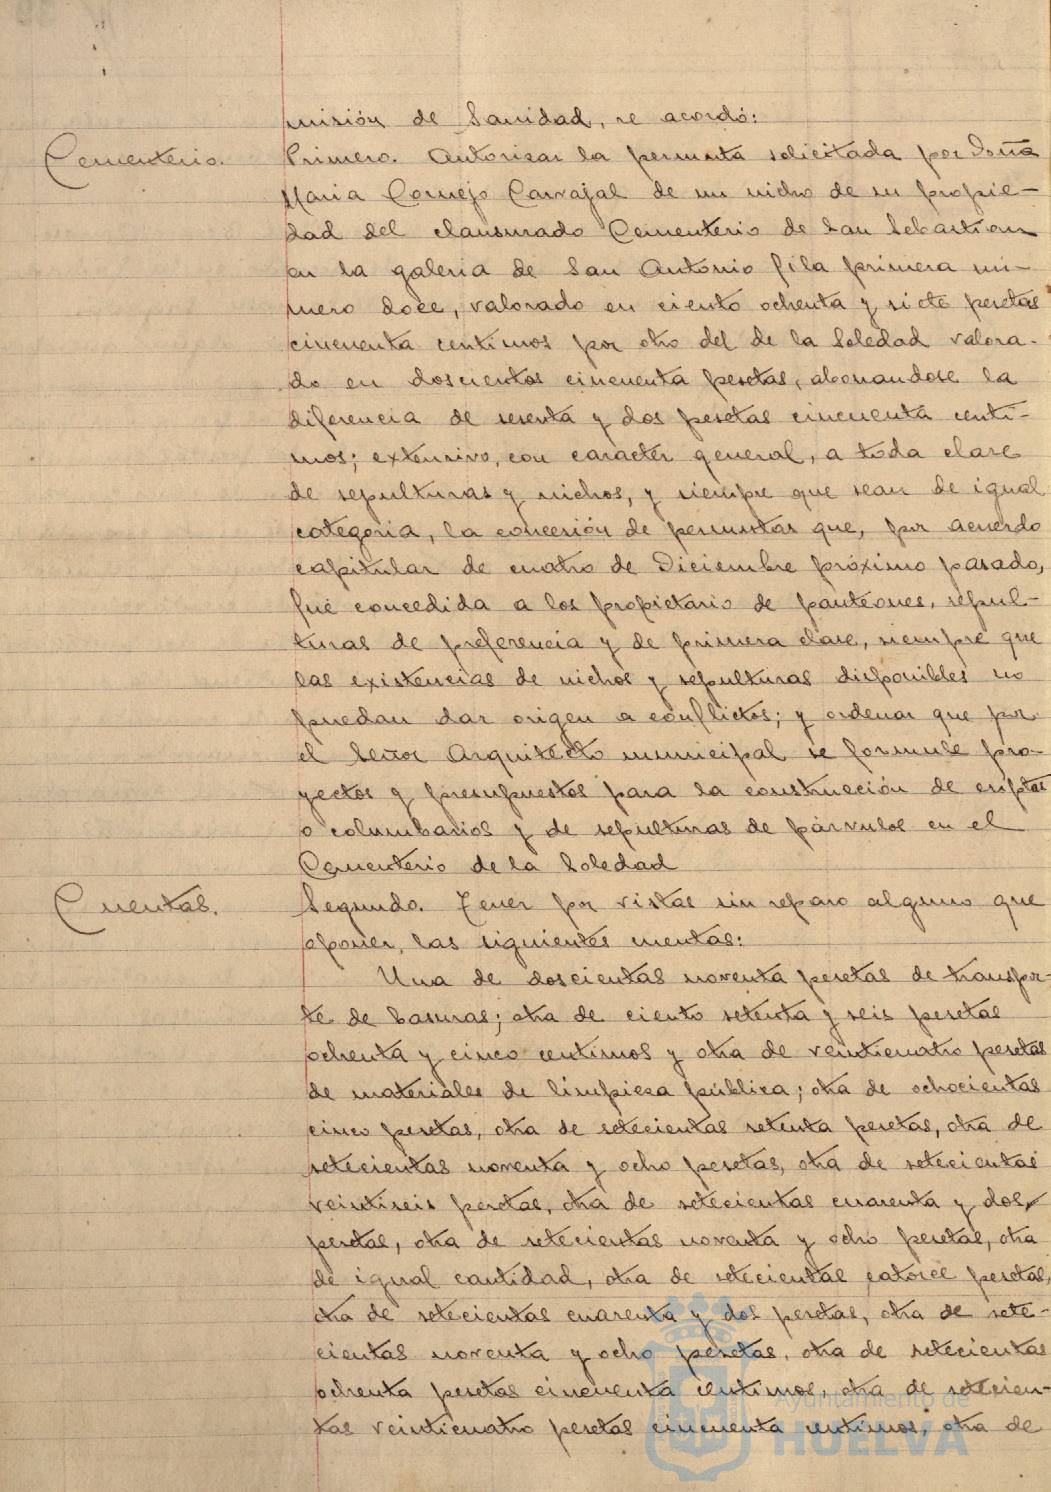 misión de Sanidad, se acordó:
Cementerio.
Primero. Autorizar la permuta solicitada por Doña
Maria Cornejo Carvajal de un nicho de su propie-
dad del clausurado Cementerio de San Sebastian
en la galeria de San Antonio fila primera nú-
mero doce, valorado en ciento ochenta y siete pesetas
cincuenta centimos por otro del de la Soledad valora-
do en doscientos cincuenta pesetas, abonandose la
diferencia de sesenta y dos pesetas cincuenta centi-
mos; extensivo, con caracter general, a toda clase
de sepulturas y nichos, y siempre que sean de igual
categoria, la concesión de permutar que, por acuerdo
capitular de cuatro de Diciembre próximo pasado,
fué concedida a los propietario de panteones, sepul-
turas de preferencia y de primera clase, siempre que
las existencias de nichos y sepulturas disponibles no
puedan dar origen a conflictos; y ordenar que por
el Señor Arquitecto municipal se formule pro-
yectos y presupuestos para la construcción de criptas
o columbarios y de sepulturas de párvulos en el
Cementerio de la Soledad
Cuentas.
Segundo. Tener por vistas sin reparo alguno que
oponer, las siguientes cuentas:
Una de doscientas noventa pesetas de transpor-
te de basuras; otra de ciento setenta y seis pesetas
ochenta y cinco centimos y otra de veinticuatro pesetas
de materiales de limpieza pública; otra de ochocientas
cinco pesetas, otra de setecientas setenta pesetas, otra de
setecientas noventa y ocho pesetas, otra de setecientas
veintiseis pesetas, otra de setecientas cuarenta y dos
pesetas, otra de setecientas noventa y ocho pesetas, otra
de igual cantidad, otra de setecientas catorce pesetas,
otra de setecientas cuarenta y dos pesetas, otra de sete-
cientas noventa y ocho pesetas, otra de setecientas
ochenta pesetas cincuenta centimos, otra de setecien-
tas veinticuatro pesetas cincuenta centimos, otra de
Ayuntamiento de
HUELVA